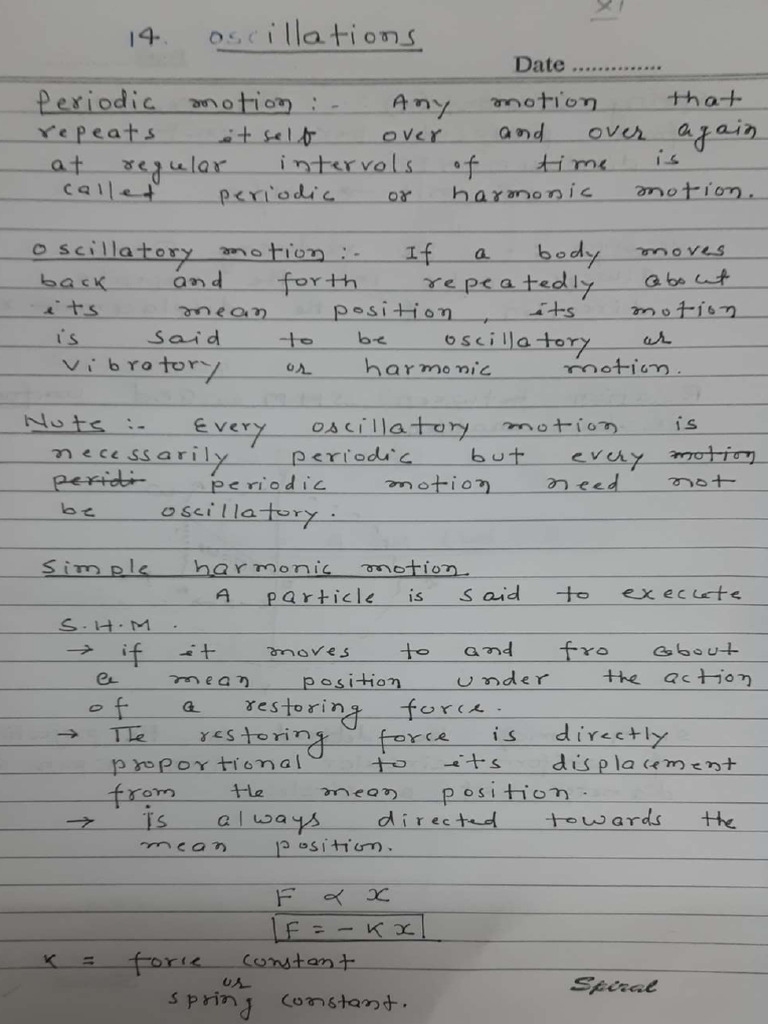 XI
14. oscillations
Date ..............
Periodic motion :- Any motion that
repeats itself over and over again
at regular intervals of time is
called periodic or harmonic motion.
oscillatory motion :- If a body moves
back and forth repeatedly about
its mean position, its motion
is said to be oscillatory or
vibratory or harmonic motion.
Note :- Every oscillatory motion is
necessarily periodic but every motion
peridi periodic motion need not
be oscillatory.
Simple harmonic motion
A particle is said to execute
S.H.M.
→ if it moves to and fro about
a mean position under the action
of a restoring force.
→ The restoring force is directly
proportional to its displacement
from the mean position.
→ is always directed towards the
mean position.
F ∝ x
F = - K x
K = force constant
or
spring constant.
Spiral